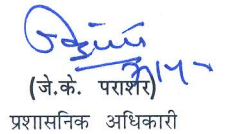 (जे.के. पराशर)
प्रशासनिक अधिकारी